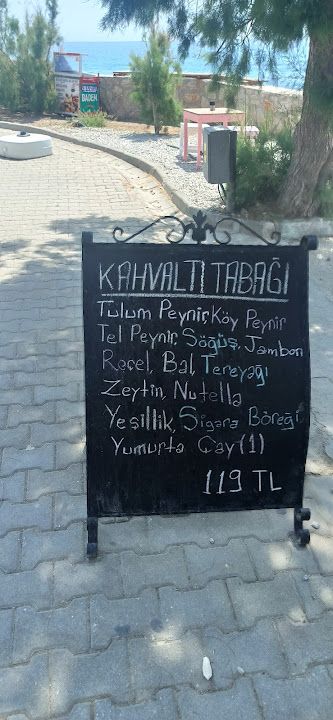 BADEN
KAHVALTI TABAĞI
Tulum Peynir, Köy Peynir
Tel Peynir, Söğüş, Jambon
Reçel, Bal, Tereyağı
Zeytin, Nutella
Yeşillik, Sigara Böreği
Yumurta Çay (1)
119 TL